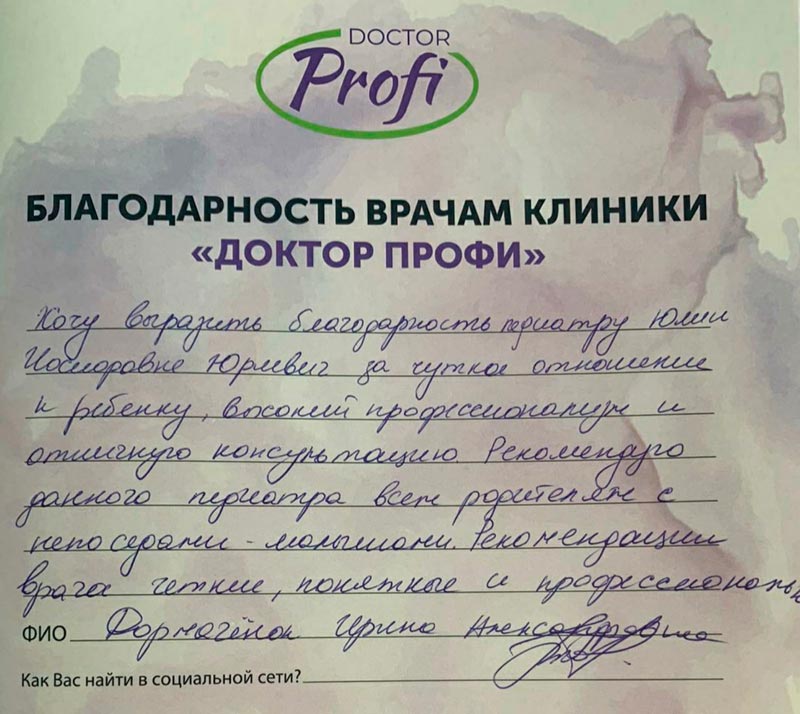 DOCTOR
Profi
БЛАГОДАРНОСТЬ ВРАЧАМ КЛИНИКИ
«ДОКТОР ПРОФИ»
Хочу выразить благодарность педиатру Юлии
Юрлевич за чуткое отношение
к ребенку, высокий профессионализм и
отличную консультацию. Рекомендую
данного педиатра всем родителям с
непоседами - малышами. Рекомендации
врача четкие, понятные и
ФИО Ирина Александровна
Как Вас найти в социальной сети?